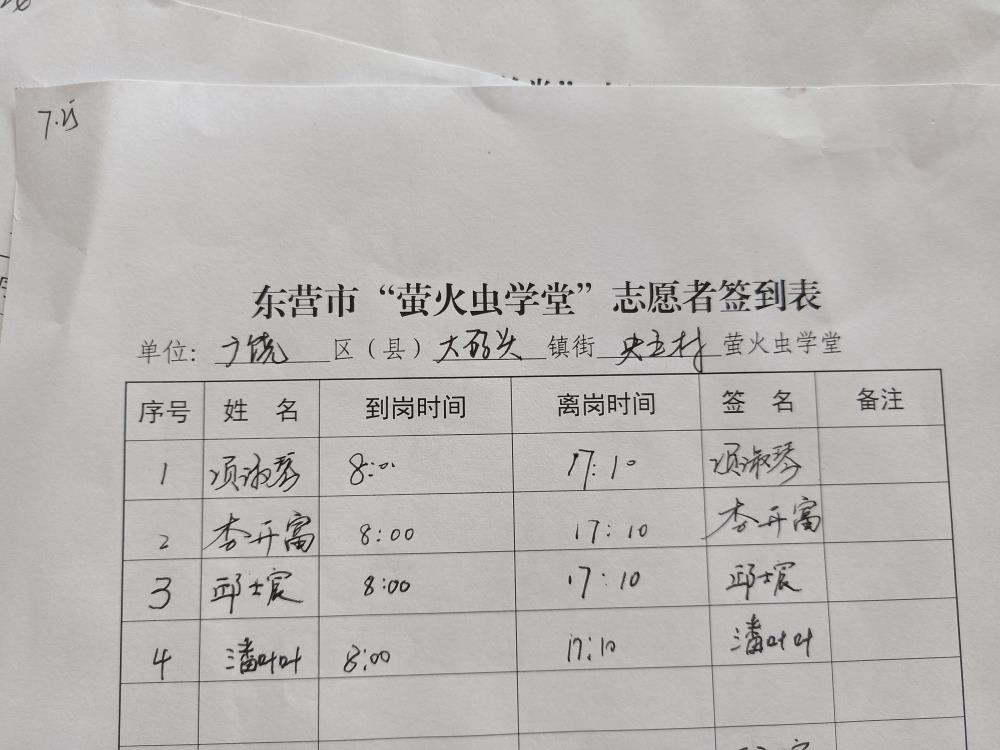 7.25
东营市“萤火虫学堂”志愿者签到表
单位：广饶区（县）大码头镇街央五村萤火虫学堂
序号 姓名 到岗时间 离岗时间 签名 备注
1 项淑琴 8:00 17:10 项淑琴
2 李开富 8:00 17:10 李开富
3 邱士宸 8:00 17:10 邱士宸
4 潘叶叶 8:00 17:10 潘叶叶